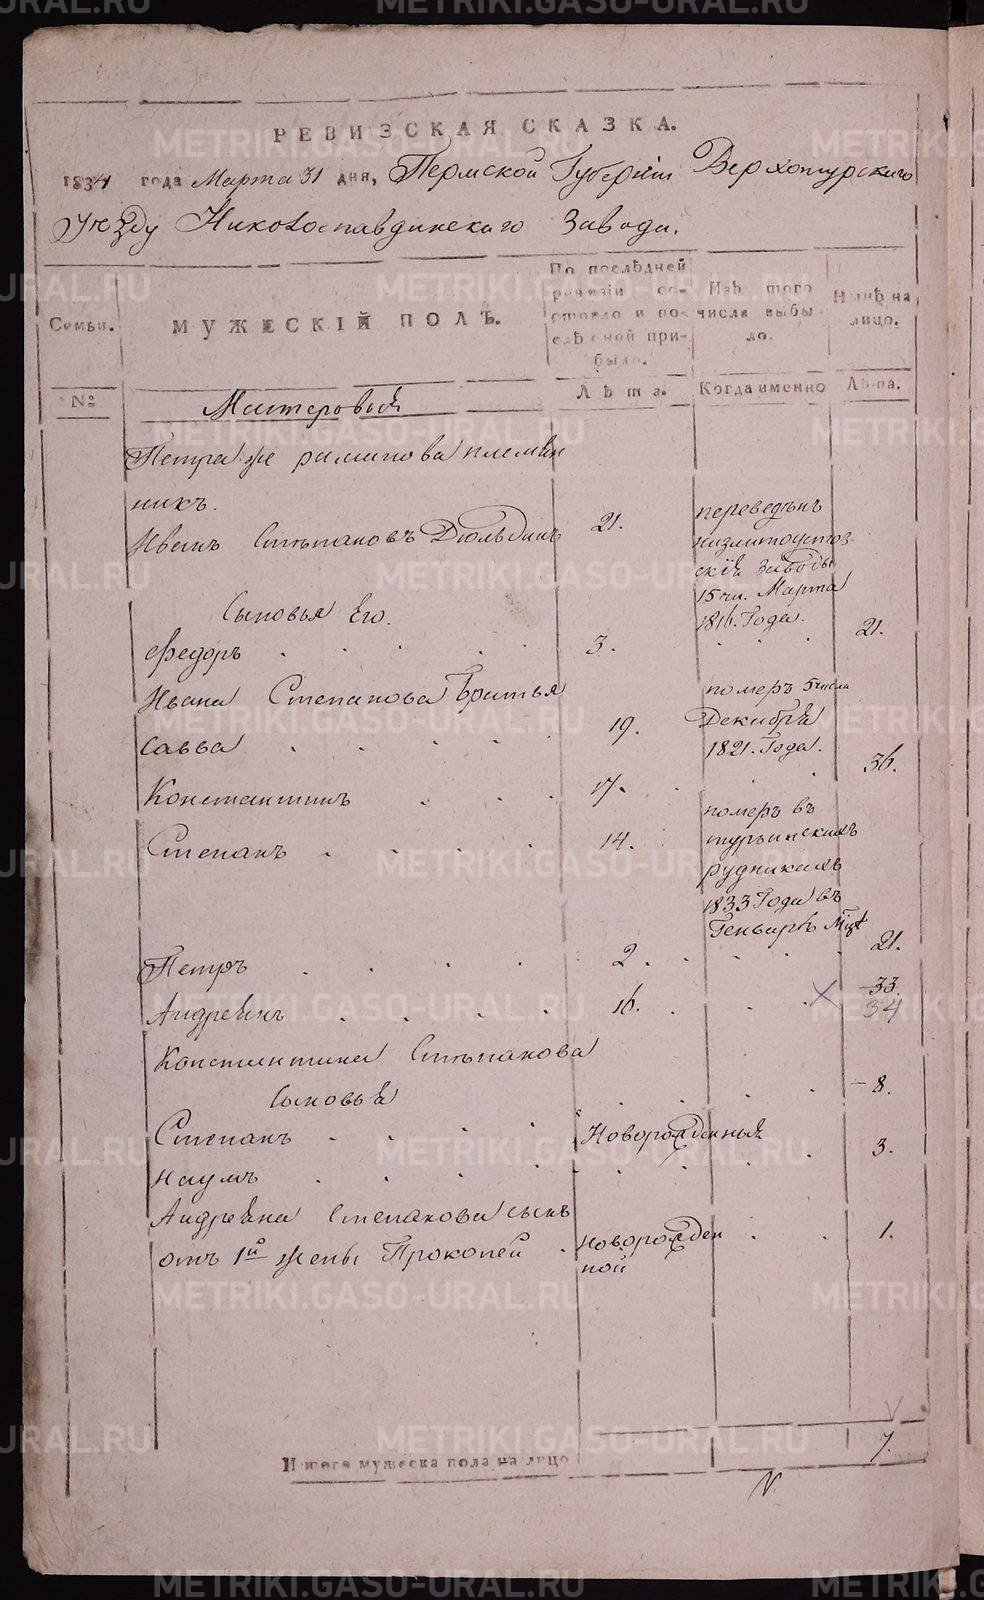 РЕВИЗСКАЯ СКАЗКА.
1834 года Марта 31 дня, Пермской Губернiи Верхотурскаго
Уезду Николаепавдинскаго Завода.
Семьи.
МУЖЕСКIЙ ПОЛЪ.
По послѣдней ревизiи состояло и послѣ оной прибыло.
Изъ того числа выбыло.
Нынѣ на лицо.
№
Лѣта.
Когда именно
Лѣта.
Мастеровыя
Петра же племян
никъ.
Иванъ Степановъ Дюльдинъ 21. переведенъ
заводы
15 чи. Марта
1816. Года.
Сыновья Его.
Федоръ 3. 21.
Ивана Степанова Братья
Савва 19. померъ 5 числа
Декабря
1821. Года.
Константинъ 17. 36.
Степанъ 14. померъ въ
турьинскихъ
рудникахъ
1833 Года въ
Генваръ Мцѣ
Петръ 2. 21.
Андреянъ 16. 33.
34
Константина Степанова
Сыновья
Степанъ Новорожденныя 8.
Наумъ 3.
Андреяна Степанова сынъ
отъ 1й жены Прокопей новорожден
ной 1.
Итого мужеска пола на лицо 7.
METRIKI.GASO-URAL.RU